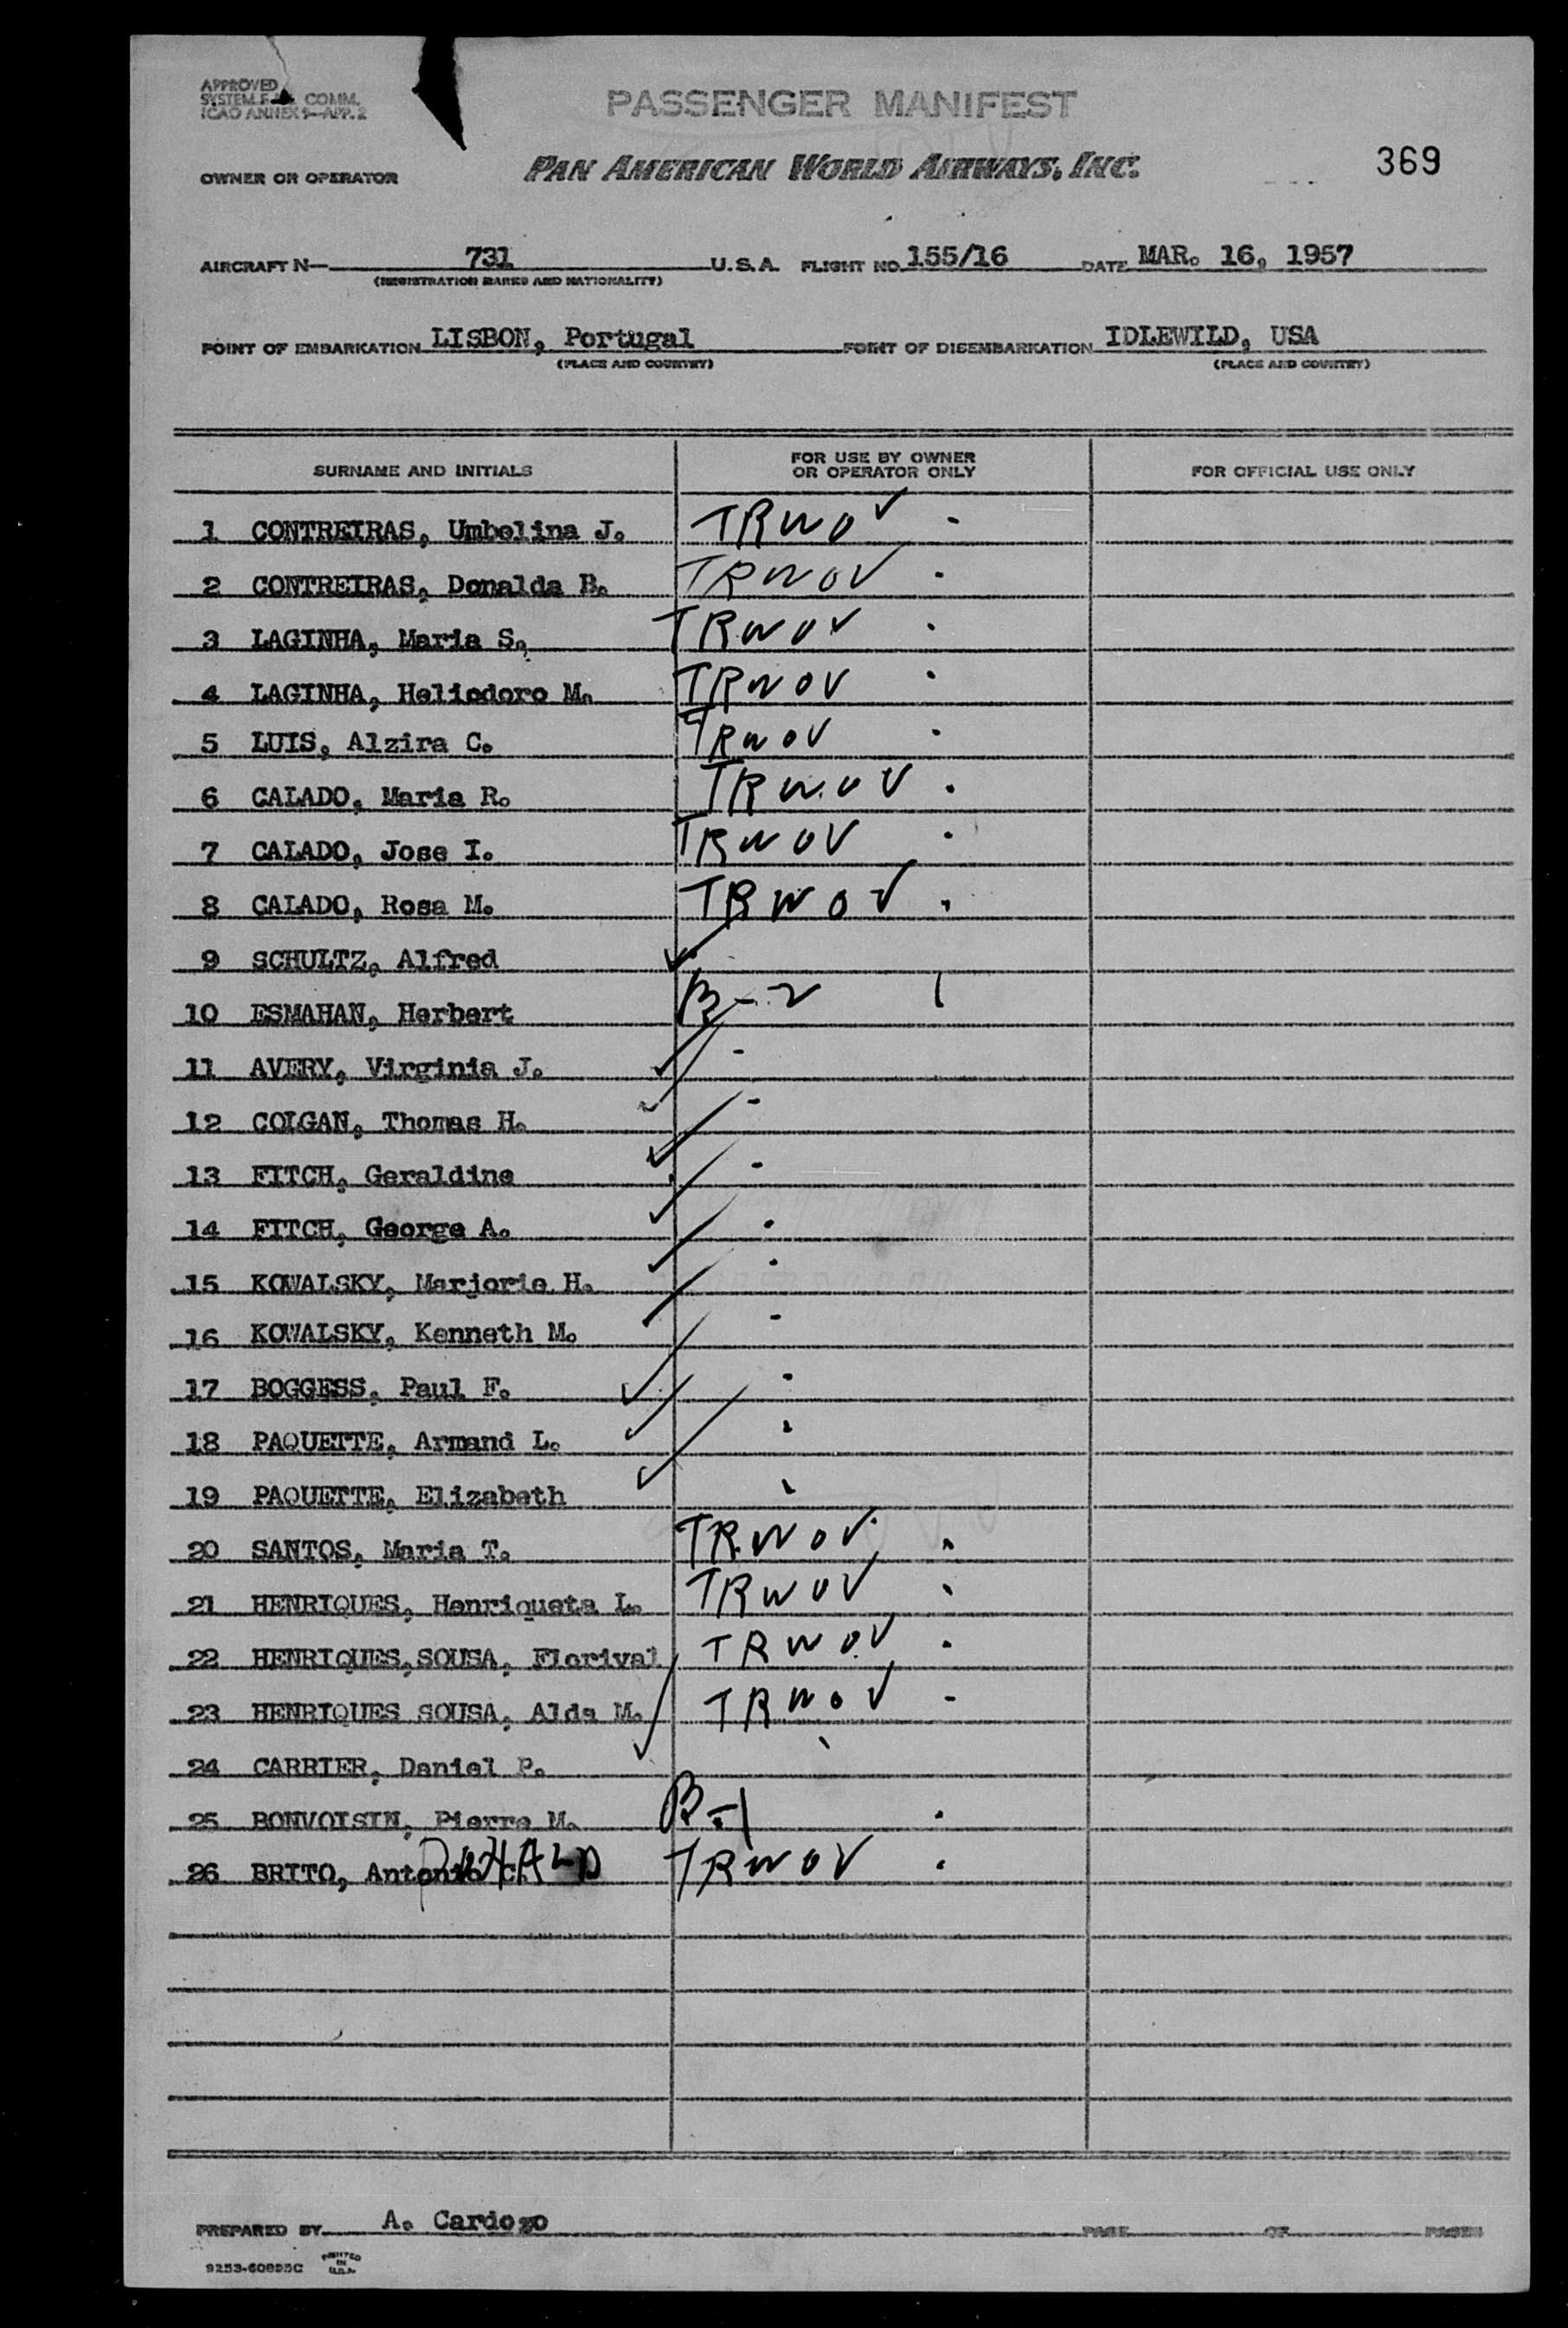 APPROVED
SYSTEM F.A.L. COMM.
ICAO ANNEX 9—APP. 2
PASSENGER MANIFEST
OWNER OR OPERATOR PAN AMERICAN WORLD AIRWAYS, INC. 369
AIRCRAFT N— 731 U.S.A. FLIGHT NO. 155/16 DATE MAR. 16, 1957
(REGISTRATION MARKS AND NATIONALITY)
POINT OF EMBARKATION LISBON, Portugal POINT OF DISEMBARKATION IDLEWILD, USA
(PLACE AND COUNTRY) (PLACE AND COUNTRY)
SURNAME AND INITIALS FOR USE BY OWNER OR OPERATOR ONLY FOR OFFICIAL USE ONLY
1 CONTREIRAS, Umbelina J. TRWOV
2 CONTREIRAS, Donalda B. TRWOV
3 LAGINHA, Maria S. TRWOV
4 LAGINHA, Heliodoro M. TRWOV
5 LUIS, Alzira C. TRWOV
6 CALADO, Maria R. TRWOV
7 CALADO, Jose I. TRWOV
8 CALADO, Rosa M. TRWOV
9 SCHULTZ, Alfred
10 ESMAHAN, Herbert B-2
11 AVERY, Virginia J.
12 COLGAN, Thomas H.
13 FITCH, Geraldine
14 FITCH, George A.
15 KOWALSKY, Marjorie H.
16 KOWALSKY, Kenneth M.
17 BOGGESS, Paul F.
18 PAQUETTE, Armand L.
19 PAQUETTE, Elizabeth
20 SANTOS, Maria T. TRWOV
21 HENRIQUES, Henriqueta L. TRWOV
22 HENRIQUES,SOUSA, Florival TRWOV
23 HENRIQUES SOUSA, Alda M. TRWOV
24 CARRIER, Daniel P.
25 BONVOISIN, Pierre M. B-1
26 BRITO, Antonio C. TRWOV
PREPARED BY A. Cardozo PAGE OF PAGES
9253-60895C PRINTED IN U.S.A.